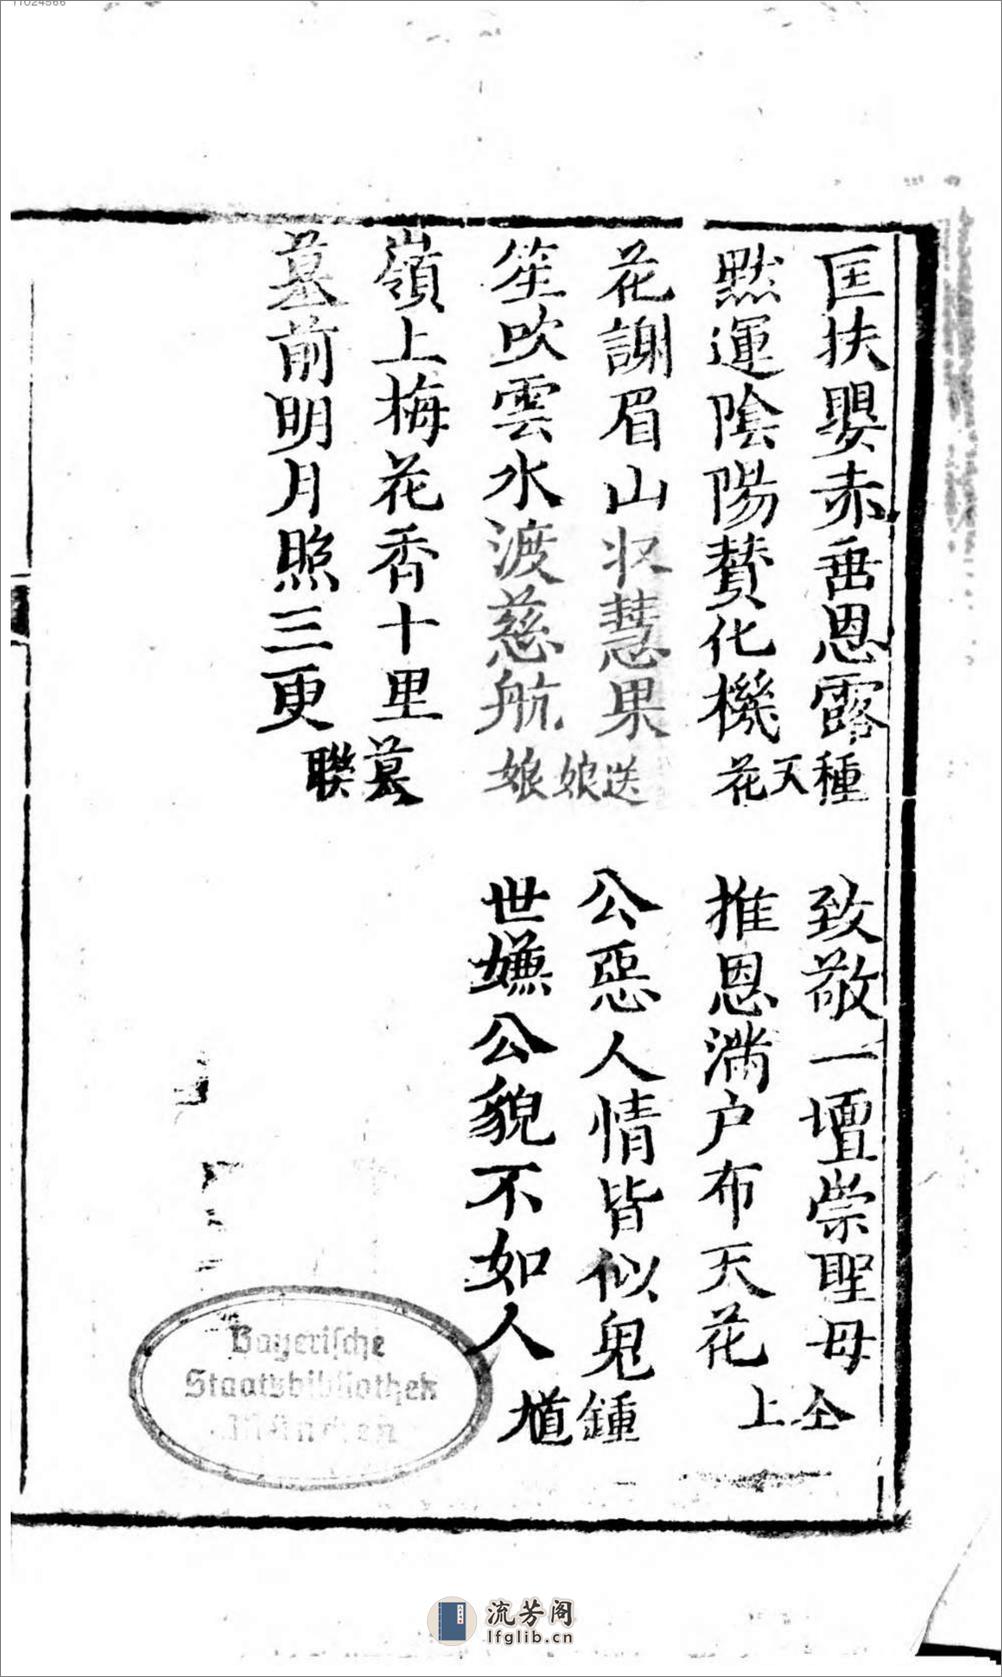 11024566
匡扶嬰赤垂恩露
默運陰陽贊化機
種天花
花謝眉山收慧果
笙吹雲水渡慈航
送娘娘
嶺上梅花香十里
墓前明月照三更
墓聯
致敬一壇崇聖母
推恩滿户布天花
仝上
公惡人情皆似鬼
世嫌公貌不如人
鍾馗
Bayerische
Staatsbibliothek
München
流芳阁
lfglib.cn